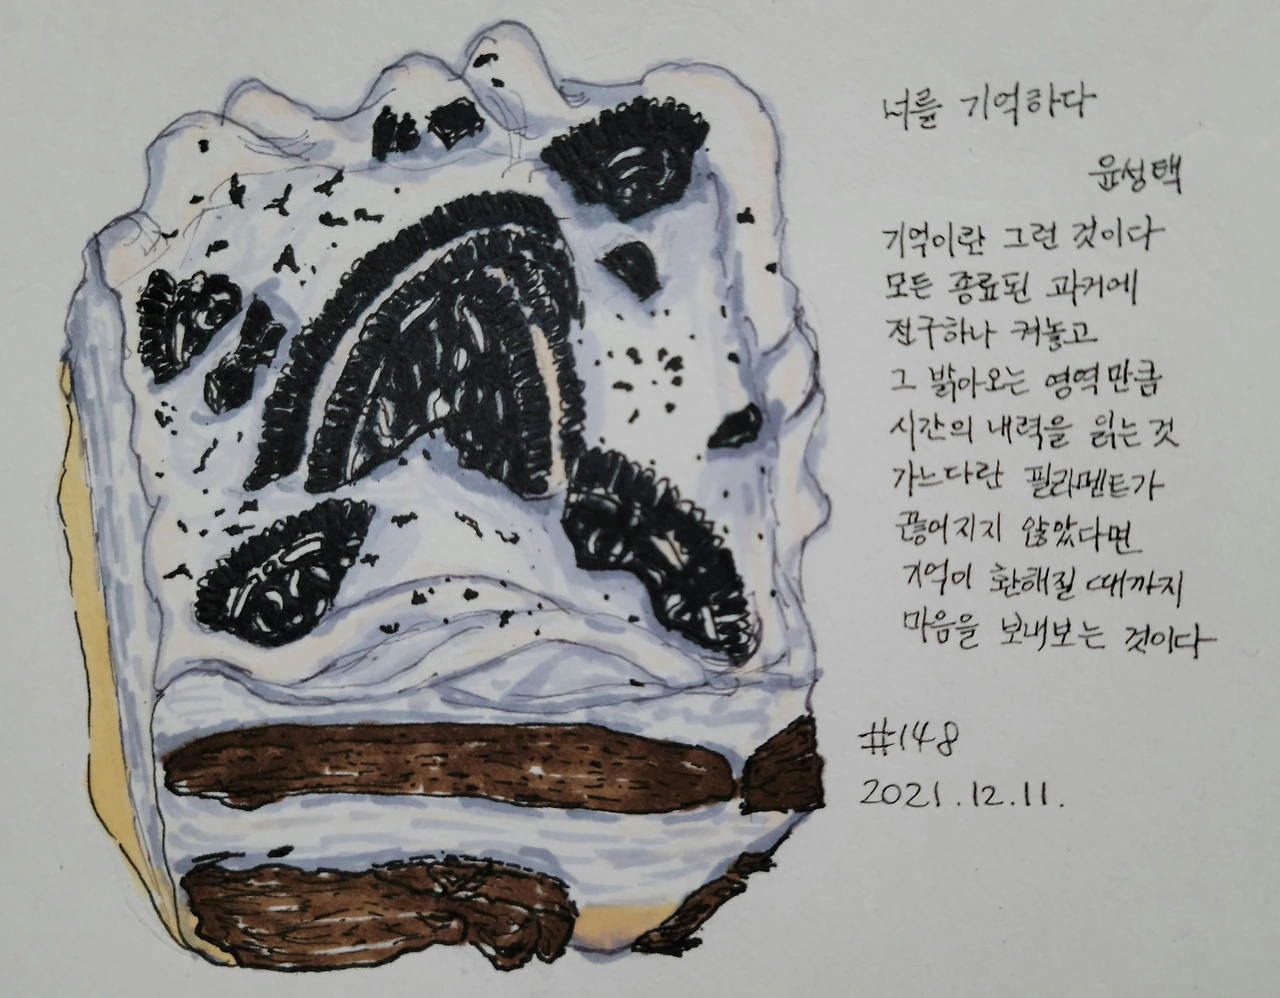 너를 기억하다
윤성택
기억이란 그런 것이다
모든 종료된 과거에
전구하나 켜놓고
그 밝아오는 영역만큼
시간의 내력을 읽는 것
가느다란 필라멘트가
끊어지지 않았다면
기억이 환해질 때까지
마음을 보내보는 것이다
#148
2021.12.11.